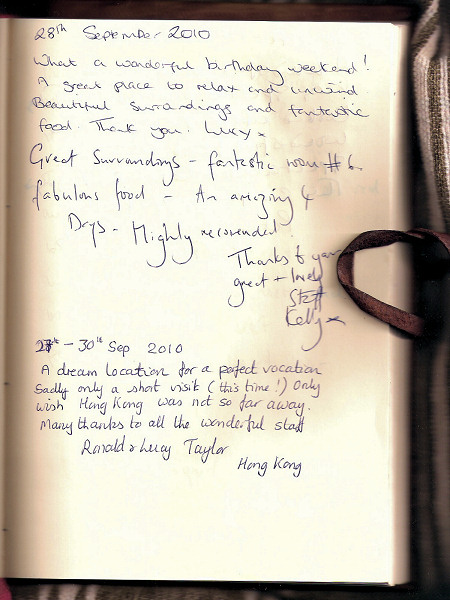 28th September 2010
What a wonderful birthday weekend!
A great place to relax and unwind.
Beautiful surrondings and fantastic
food. Thank you. Lucy x
Great Surroundings - fantastic room #6
fabulous food - An amazing 4
Days - Highly recomended.
Thanks to your
great + lovely
Staff
Kelly x
27th - 30th Sep 2010
A dream location for a perfect vacation
Sadly only a short visit (this time!) Only
wish Hong Kong was not so far away.
Many thanks to all the wonderful staff
Ronald & Lucy Taylor
Hong Kong